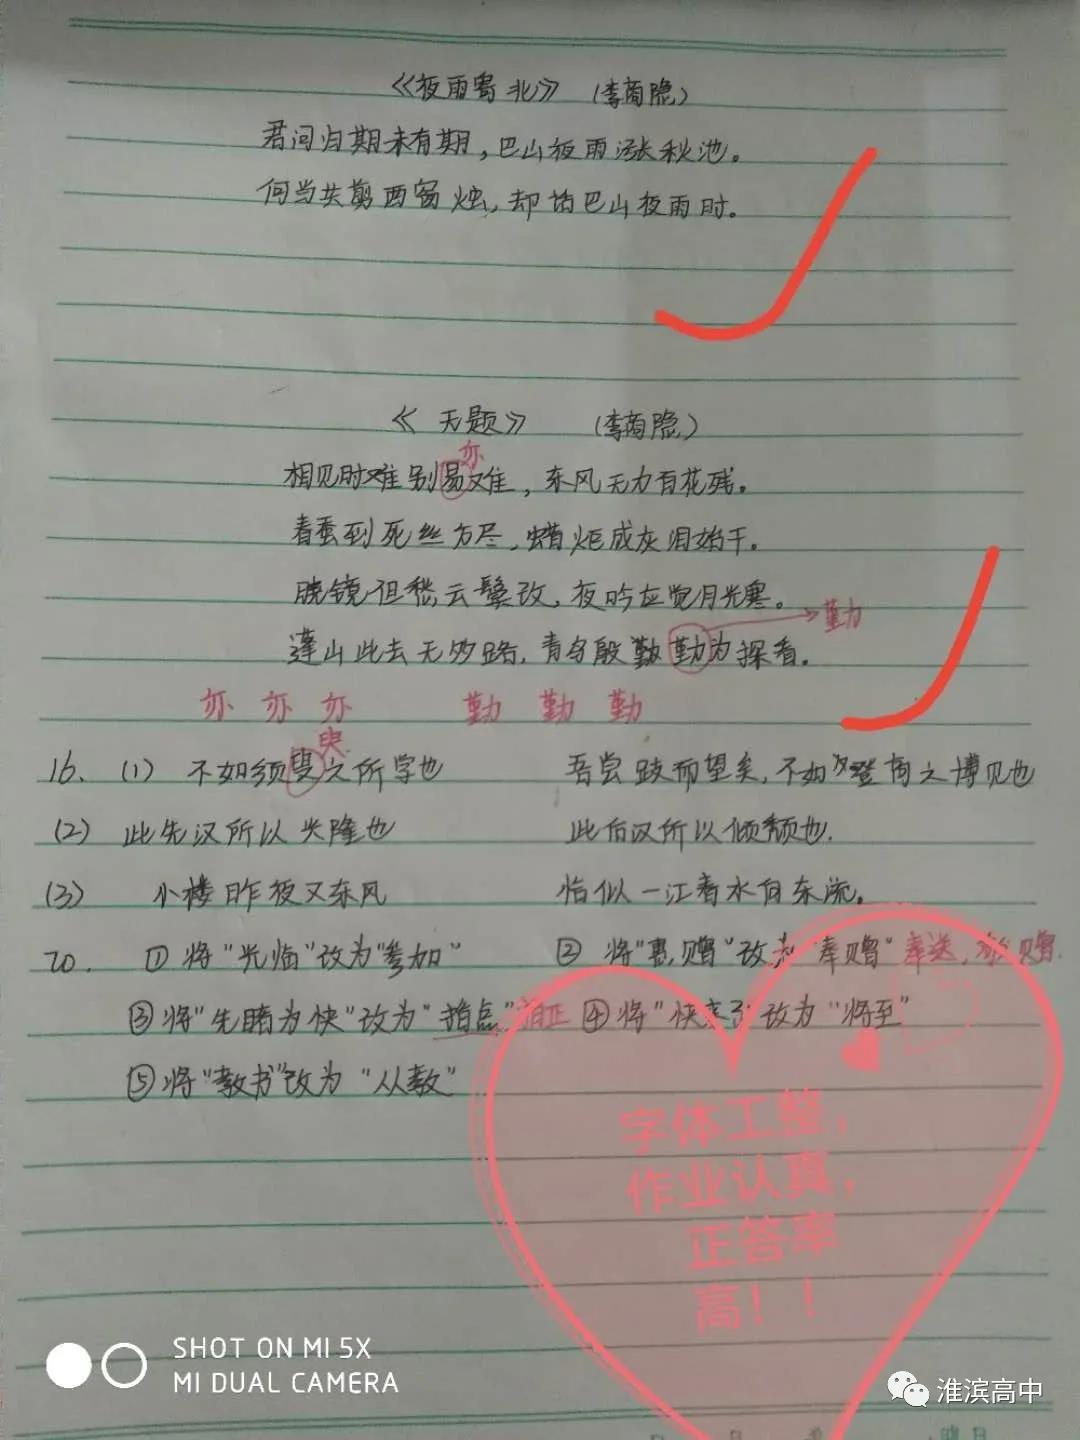 《夜雨寄北》 (李商隐)
君问归期未有期，巴山夜雨涨秋池。
何当共剪西窗烛，却话巴山夜雨时。
《无题》 (李商隐)
亦
相见时难别易难，东风无力百花残。
春蚕到死丝方尽，蜡炬成灰泪始干。
晓镜但愁云鬓改，夜吟应觉月光寒。
勤
蓬山此去无多路，青鸟殷勤勤为探看。
亦 亦 亦 勤 勤 勤
臾
16. (1) 不如须臾之所学也 吾尝跂而望矣，不如登高之博见也
(2) 此先汉所以兴隆也 此后汉所以倾颓也.
(3) 小楼昨夜又东风 恰似一江春水向东流。
20. ①将“光临”改为“参加” ②将“惠赠”改为“奉赠” 奉送，赠
③将“先睹为快”改为“指点” 指正 ④将“快来了”改为“将至”
⑤将“教书”改为“从教”
字体工整，
作业认真，
正答率
高！！
SHOT ON MI 5X
MI DUAL CAMERA
淮滨高中